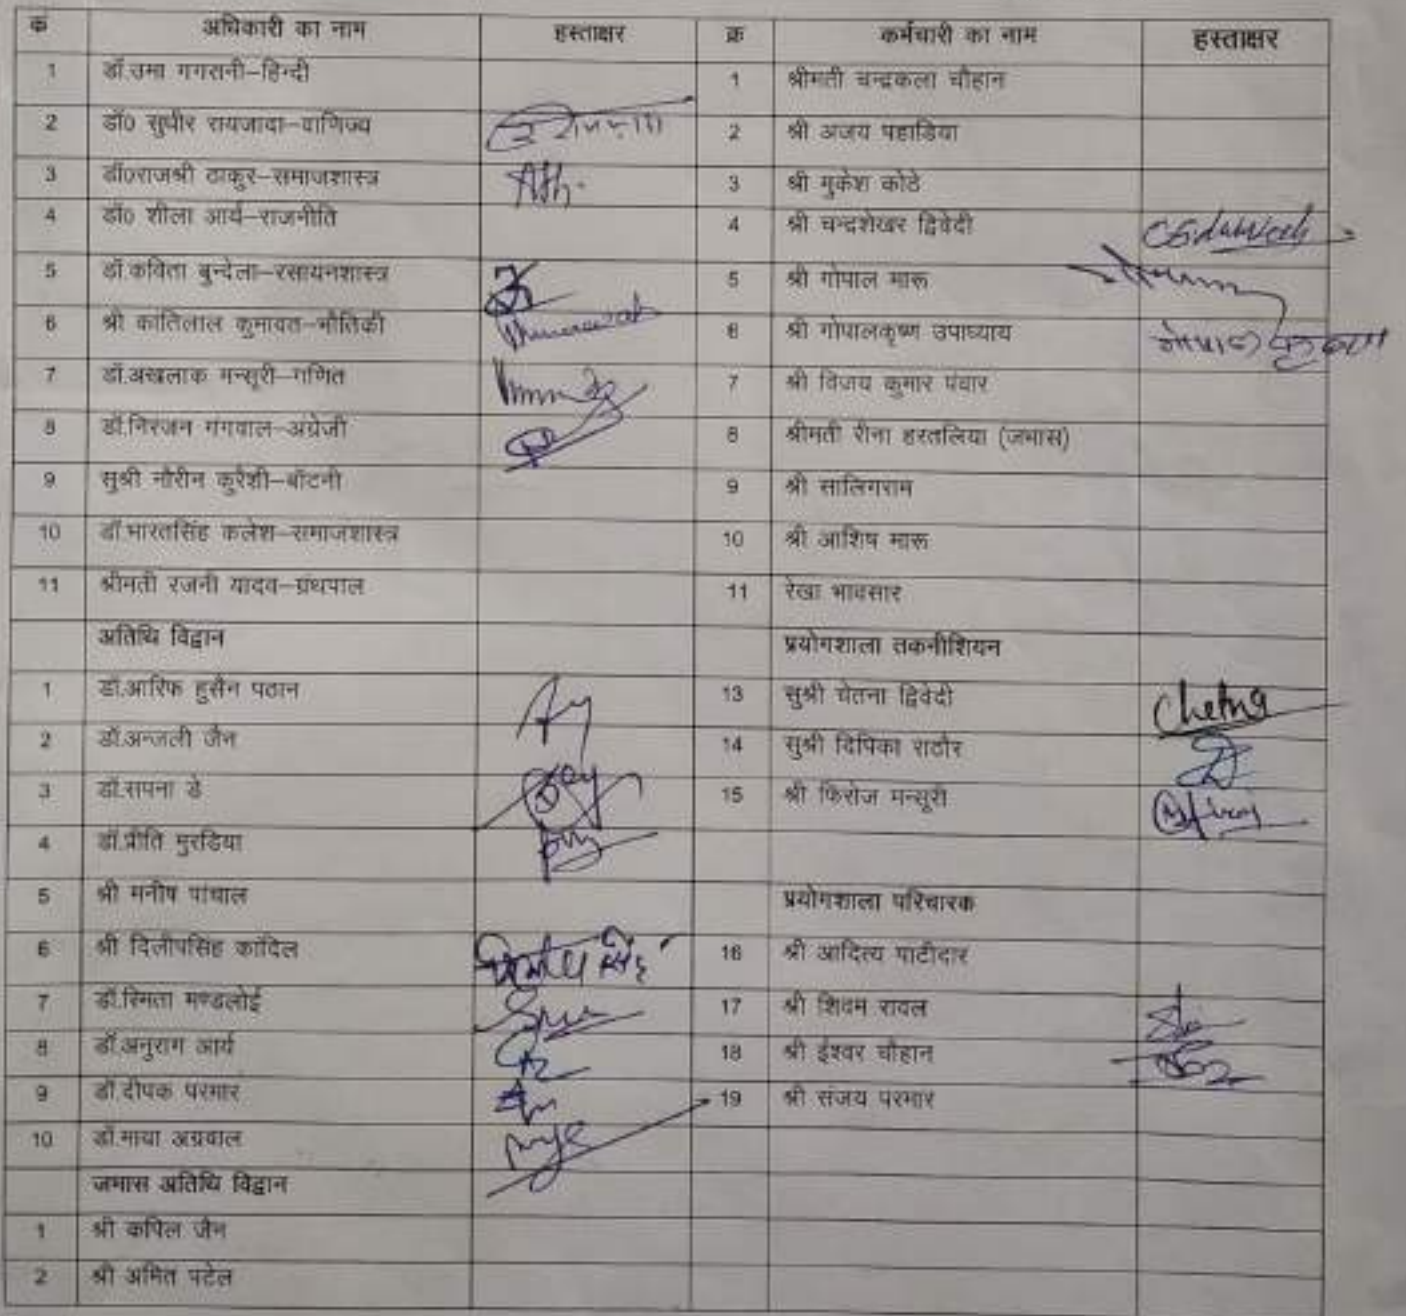 क अधिकारी का नाम हस्ताक्षर क्र कर्मचारी का नाम हस्ताक्षर
1 डॉ.उमा गगरानी–हिन्दी 1 श्रीमती चन्द्रकला चौहान
2 डॉ0 सुधीर रायजादा–वाणिज्य 2 श्री अजय पहाडिया
3 डॉ0राजश्री ठाकुर–समाजशास्त्र 3 श्री मुकेश कोठे
4 डॉ0 शीला आर्य–राजनीति 4 श्री चन्दशेखर द्विवेदी
5 डॉ.कविता बुन्देला–रसायनशास्त्र 5 श्री गोपाल मारू
6 श्री कांतिलाल कुमावत–भौतिकी 6 श्री गोपालकृष्ण उपाध्याय गोपालकृष्ण
7 डॉ.अखलाक मन्सूरी–गणित 7 श्री विजय कुमार पंवार
8 डॉ.निरंजन गंगवाल–अंग्रेजी 8 श्रीमती रीना हरतालिया (जभास)
9 सुश्री नौरीन कुरैशी–बॉटनी 9 श्री सालिगराम
10 डॉ.भारतसिंह कलेश–समाजशास्त्र 10 श्री आशिष मारू
11 श्रीमती रजनी यादव–ग्रंथपाल 11 रेखा भावसार
अतिथि विद्वान प्रयोगशाला तकनीशियन
1 डॉ.आरिफ हुसैन पठान 13 सुश्री चेतना द्विवेदी Chetna
2 डॉ.अन्जली जैन 14 सुश्री दिपिका राठौर
3 डॉ.सपना डे 15 श्री फिरोज मन्सूरी
4 डॉ.प्रीति मुरडिया
5 श्री मनीष पांचाल प्रयोगशाला परिचारक
6 श्री दिलीपसिंह कांदिल 16 श्री आदित्य पाटीदार
7 डॉ.स्मिता मण्डलोई 17 श्री शिवम रावल
8 डॉ.अनुराग आर्य 18 श्री ईश्वर चौहान
9 डॉ.दीपक परमार 19 श्री संजय परमार
10 डॉ.माया अग्रवाल
जभास अतिथि विद्वान
1 श्री कपिल जैन
2 श्री अमित पटेल